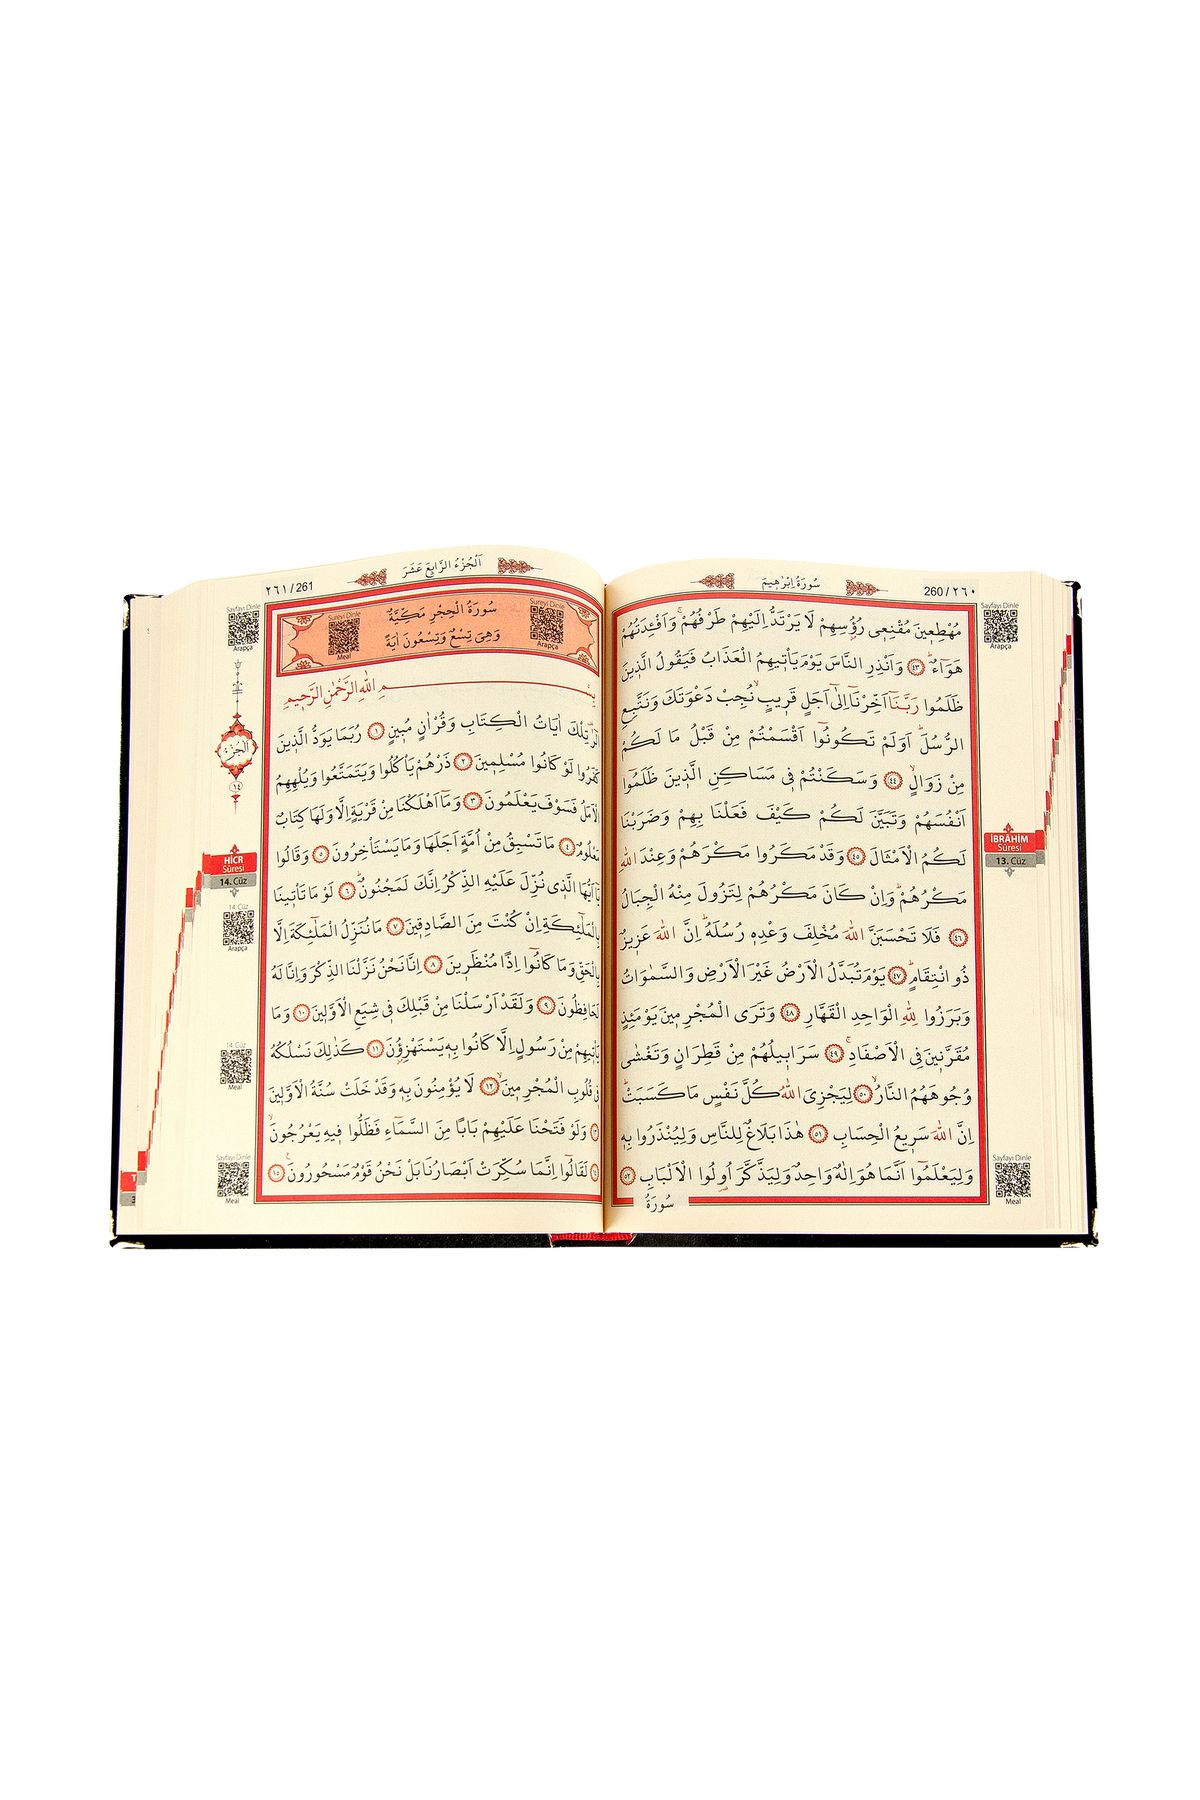 سُورَةُ اِبْرٰه۪يمَ
260 / ٢٦٠
Sayfayı Dinle
Arapça
مُهْطِع۪ينَ مُقْنِع۪ي رُؤُ۫سِهِمْ لَا يَرْتَدُّ اِلَيْهِمْ طَرْفُهُمْۚ وَاَفْـِٔدَتُهُمْ
هَوَٓاءٌۜ ﴿٤٣﴾ وَاَنْذِرِ النَّاسَ يَوْمَ يَأْت۪يهِمُ الْعَذَابُ فَيَقُولُ الَّذ۪ينَ
ظَلَمُوا رَبَّنَٓا اَخِّرْنَٓا اِلٰٓى اَجَلٍ قَر۪يبٍۙ نُجِبْ دَعْوَتَكَ وَنَتَّبِعِ
الرُّسُلَۜ اَوَلَمْ تَكُونُٓوا اَقْسَمْتُمْ مِنْ قَبْلُ مَا لَكُمْ
مِنْ زَوَالٍۙ ﴿٤٤﴾ وَسَكَنْتُمْ ف۪ي مَسَاكِنِ الَّذ۪ينَ ظَلَمُٓوا
اَنْفُسَهُمْ وَتَبَيَّنَ لَكُمْ كَيْفَ فَعَلْنَا بِهِمْ وَضَرَبْنَا
لَكُمُ الْاَمْثَالَ ﴿٤٥﴾ وَقَدْ مَكَرُوا مَكْرَهُمْ وَعِنْدَ اللّٰهِ
مَكْرُهُمْۜ وَاِنْ كَانَ مَكْرُهُمْ لِتَزُولَ مِنْهُ الْجِبَالُ
﴿٤٦﴾ فَلَا تَحْسَبَنَّ اللّٰهَ مُخْلِفَ وَعْدِه۪ رُسُلَهُۜ اِنَّ اللّٰهَ عَز۪يزٌ
ذُو انْتِقَامٍۜ ﴿٤٧﴾ يَوْمَ تُبَدَّلُ الْاَرْضُ غَيْرَ الْاَرْضِ وَالسَّمٰوَاتُ
وَبَرَزُوا لِلّٰهِ الْوَاحِدِ الْقَهَّارِ ﴿٤٨﴾ وَتَرَى الْمُجْرِم۪ينَ يَوْمَئِذٍ
مُقَرَّن۪ينَ فِي الْاَصْفَادِۚ ﴿٤٩﴾ سَرَاب۪يلُهُمْ مِنْ قَطِرَانٍ وَتَغْشٰى
وُجُوهَهُمُ النَّارُۙ ﴿٥٠﴾ لِيَجْزِيَ اللّٰهُ كُلَّ نَفْسٍ مَا كَسَبَتْۜ
اِنَّ اللّٰهَ سَر۪يعُ الْحِسَابِ ﴿٥١﴾ هٰذَا بَلَاغٌ لِلنَّاسِ وَلِيُنْذَرُوا بِه۪
وَلِيَعْلَمُٓوا اَنَّمَا هُوَ اِلٰهٌ وَاحِدٌ وَلِيَذَّكَّرَ اُو۬لُوا الْاَلْبَابِ ﴿٥٢﴾
سُورَةُ
İBRÂHİM
Sûresi
13. Cüz
Sayfayı Dinle
Meal
٢٦١ / 261
اَلْجُزْءُ الرَّابِعُ عَشَرَ
Sayfayı Dinle
Arapça
Sureyi Dinle
Arapça
سُورَةُ الْحِجْرِ مَكِّيَّةٌ
وَهِيَ تِسْعٌ وَتِسْعُونَ اٰيَةً
Sureyi Dinle
Meal
بِسْمِ اللّٰهِ الرَّحْمٰنِ الرَّح۪يمِ
الٓرٰ۠ تِلْكَ اٰيَاتُ الْكِتَابِ وَقُرْاٰنٍ مُب۪ينٍ ﴿١﴾ رُبَمَا يَوَدُّ الَّذ۪ينَ
كَفَرُوا لَوْ كَانُوا مُسْلِم۪ينَ ﴿٢﴾ ذَرْهُمْ يَأْكُلُوا وَيَتَمَتَّعُوا وَيُلْهِهِمُ
الْاَمَلُ فَسَوْفَ يَعْلَمُونَ ﴿٣﴾ وَمَٓا اَهْلَكْنَا مِنْ قَرْيَةٍ اِلَّا وَلَهَا كِتَابٌ
مَعْلُومٌ ﴿٤﴾ مَا تَسْبِقُ مِنْ اُمَّةٍ اَجَلَهَا وَمَا يَسْتَأْخِرُونَ ﴿٥﴾ وَقَالُوا
يَٓا اَيُّهَا الَّذ۪ي نُزِّلَ عَلَيْهِ الذِّكْرُ اِنَّكَ لَمَجْنُونٌۜ ﴿٦﴾ لَوْ مَا تَأْت۪ينَا
بِالْمَلٰٓئِكَةِ اِنْ كُنْتَ مِنَ الصَّادِق۪ينَ ﴿٧﴾ مَا نُنَزِّلُ الْمَلٰٓئِكَةَ اِلَّا
بِالْحَقِّ وَمَا كَانُٓوا اِذًا مُنْظَر۪ينَ ﴿٨﴾ اِنَّا نَحْنُ نَزَّلْنَا الذِّكْرَ وَاِنَّا لَهُ
لَحَافِظُونَ ﴿٩﴾ وَلَقَدْ اَرْسَلْنَا مِنْ قَبْلِكَ ف۪ي شِيَعِ الْاَوَّل۪ينَ ﴿١٠﴾ وَمَا
يَأْت۪يهِمْ مِنْ رَسُولٍ اِلَّا كَانُوا بِه۪ يَسْتَهْزِؤُ۫نَ ﴿١١﴾ كَذٰلِكَ نَسْلُكُهُ
ف۪ي قُلُوبِ الْمُجْرِم۪ينَۙ ﴿١٢﴾ لَا يُؤْمِنُونَ بِه۪ وَقَدْ خَلَتْ سُنَّةُ الْاَوَّل۪ينَ
﴿١٣﴾ وَلَوْ فَتَحْنَا عَلَيْهِمْ بَابًا مِنَ السَّمَٓاءِ فَظَلُّوا ف۪يهِ يَعْرُجُونَۙ
﴿١٤﴾ لَقَالُٓوا اِنَّمَا سُكِّرَتْ اَبْصَارُنَا بَلْ نَحْنُ قَوْمٌ مَسْحُورُونَ۟ ﴿١٥﴾
اَلْجُزْءُ
١٤
HİCR
Sûresi
14. Cüz
14. Cüz
Arapça
14. Cüz
Meal
Sayfayı Dinle
Meal